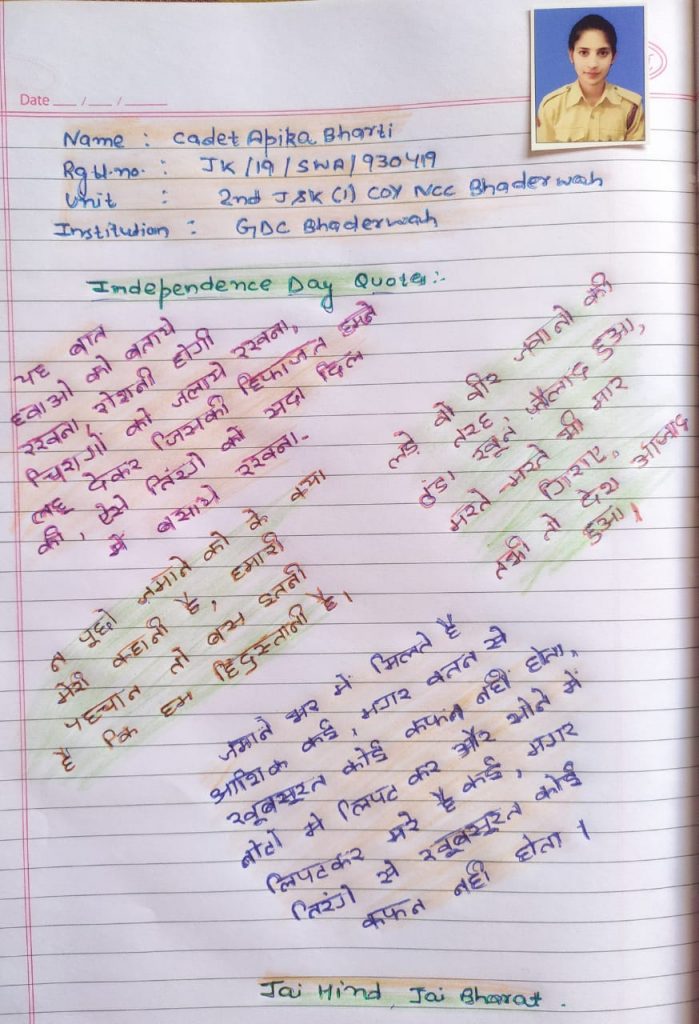 Date ___ / ___ / ______
Name : Cadet Apika Bharti
Rgtl.no. : JK/19/SWA/930419
Unit : 2nd J&K (I) COY NCC Bhaderwah
Institution : GDC Bhaderwah
Independence Day Quotes:-
यह बात
हवाओ को बताये
रखना, रोशनी होगी
चिरागों को जलाये रखना,
लहू देकर जिसकी हिफाजत हमने
की, ऐसे तिरंगे को सदा दिल
में बसाये रखना.
लड़े वो वीर जवानो की
तरह, 
ठंडा खून फौलाद हुआ,
मरते-मरते भी मार
गिराए,
तभी तो देश आज़ाद
हुआ!
न पूछो जमाने को के क्या
मेरी कहानी है, हमारी
पहचान तो बस इतनी
है कि हम हिंदुस्तानी है।
जमाने भर में मिलते है
आशिक कई, मगर वतन से
खूबसूरत कोई कफन नहीं होता,
नोटों मे लिपट कर और सोने में
लिपटकर मरे है कई, मगर
तिरंगे से खूबसूरत कोई
कफन नहीं होता।
Jai Hind, Jai Bharat.